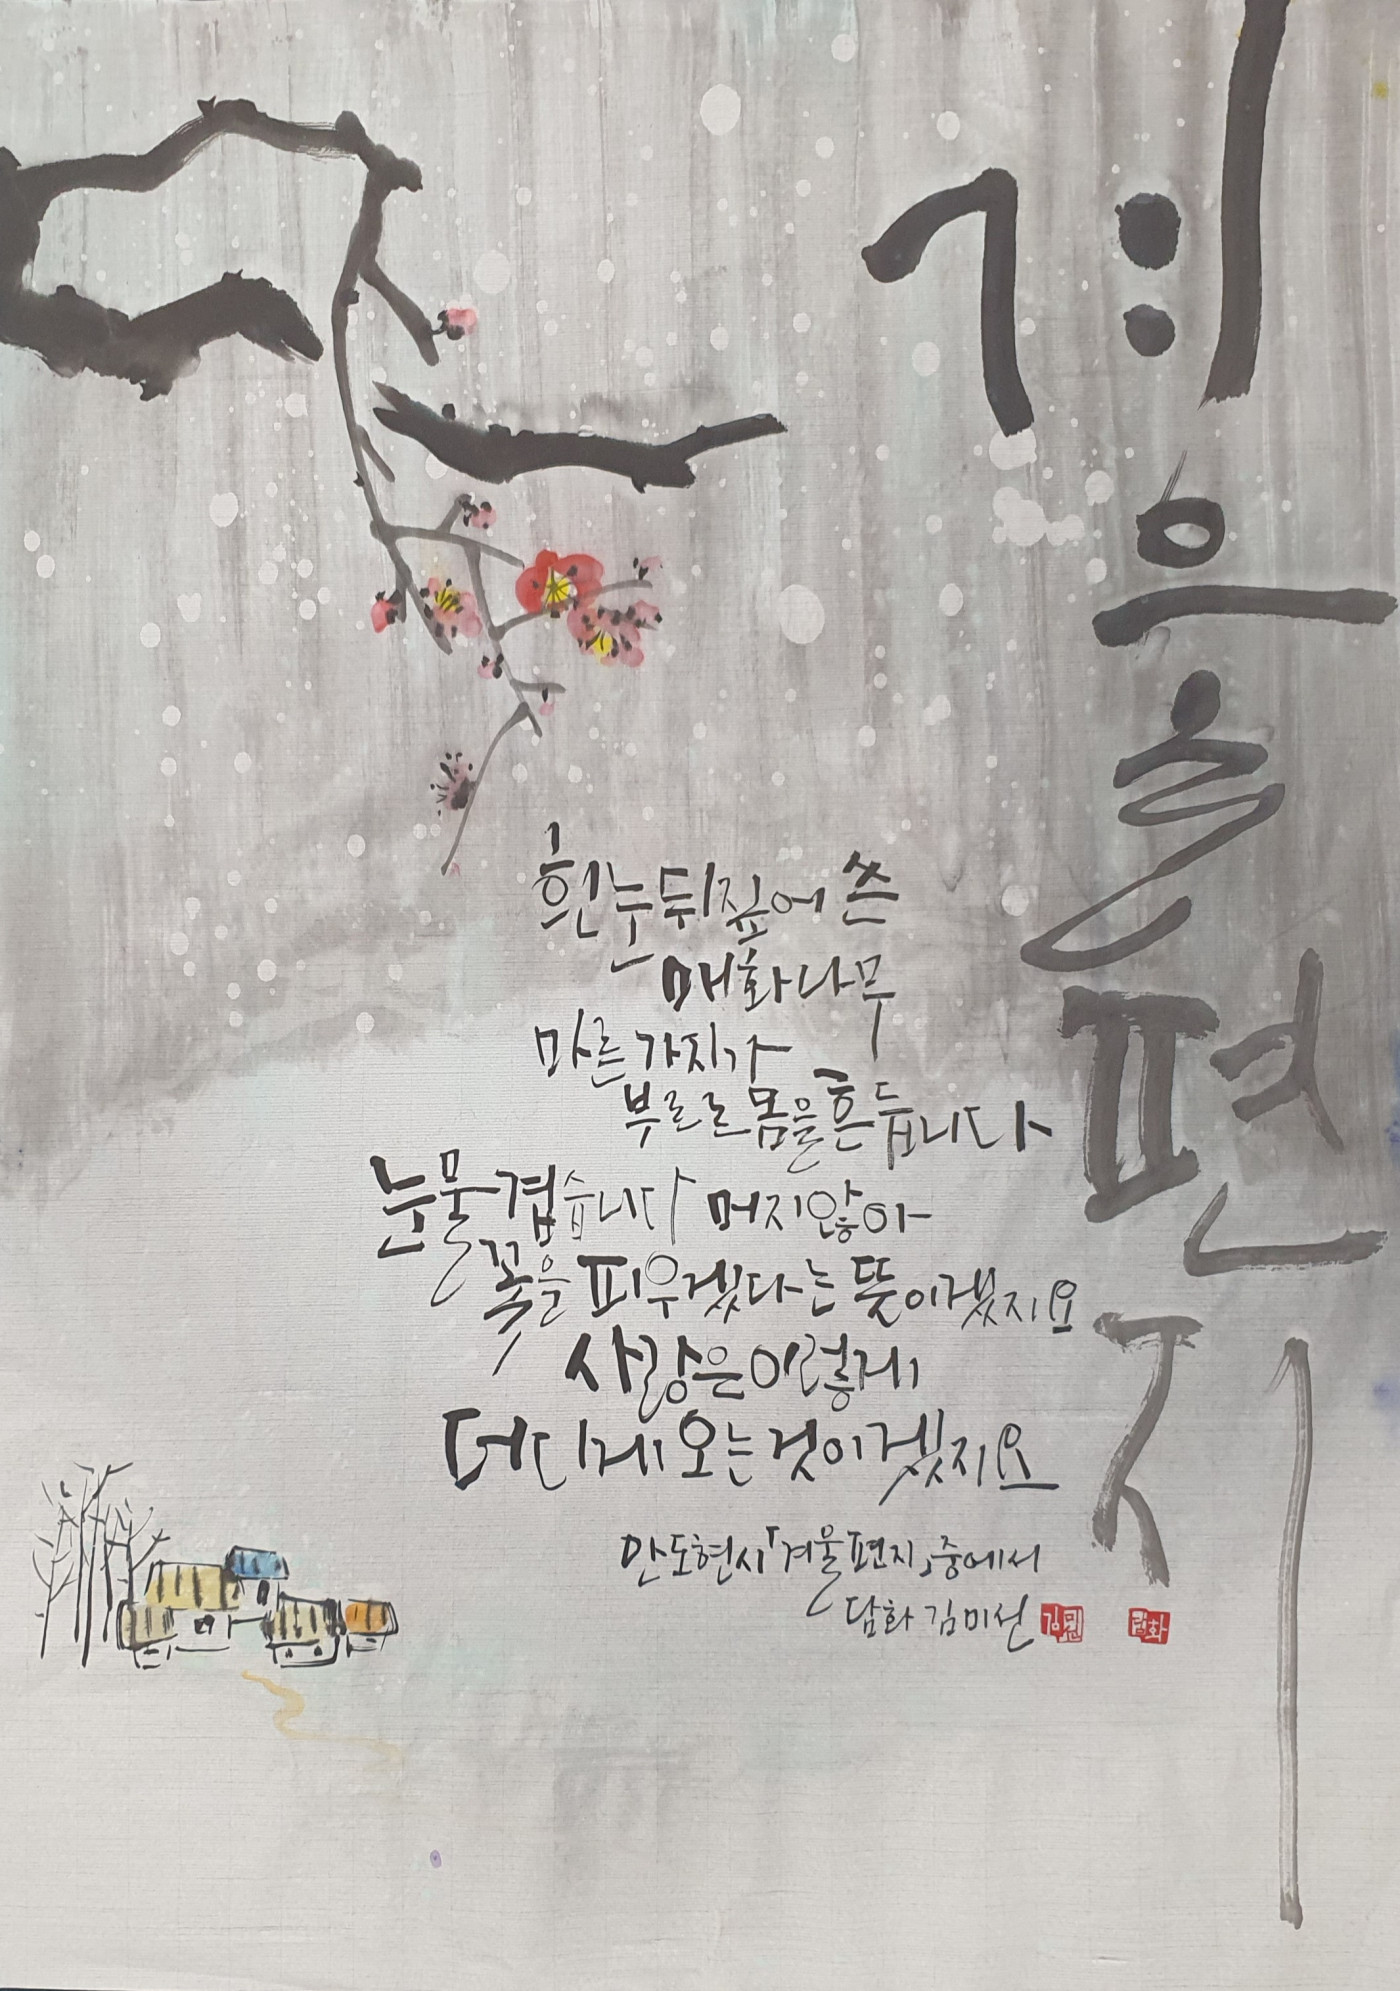 겨울편지
흰눈 뒤집어 쓴
매화나무
마른 가지가
부르르 몸을 흔듭니다
눈물겹습니다 머지않아
꽃을 피우겠다는 뜻이겠지요
사랑은 이렇게
더디게 오는 것이겠지요
안도현시「겨울편지」중에서
담화 김미선
담화